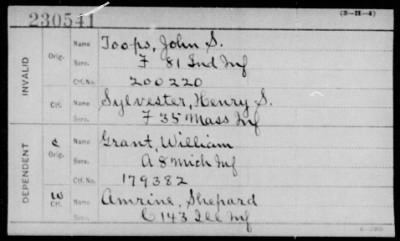 230541
(3-21-4)
INVALID
Orig. Name Toops, John S.
Serv. F 81 Ind Inf
Ctf. No. 200220
Ctf. Name Sylvester, Henry S.
Serv. F 35 Mass Inf
DEPENDENT
C Orig. Name Grant, William
Serv. A 8 Mich Inf
Ctf. No. 179382
W Ctf. Name Amrine, Shepard
Serv. C 143 Ill Inf